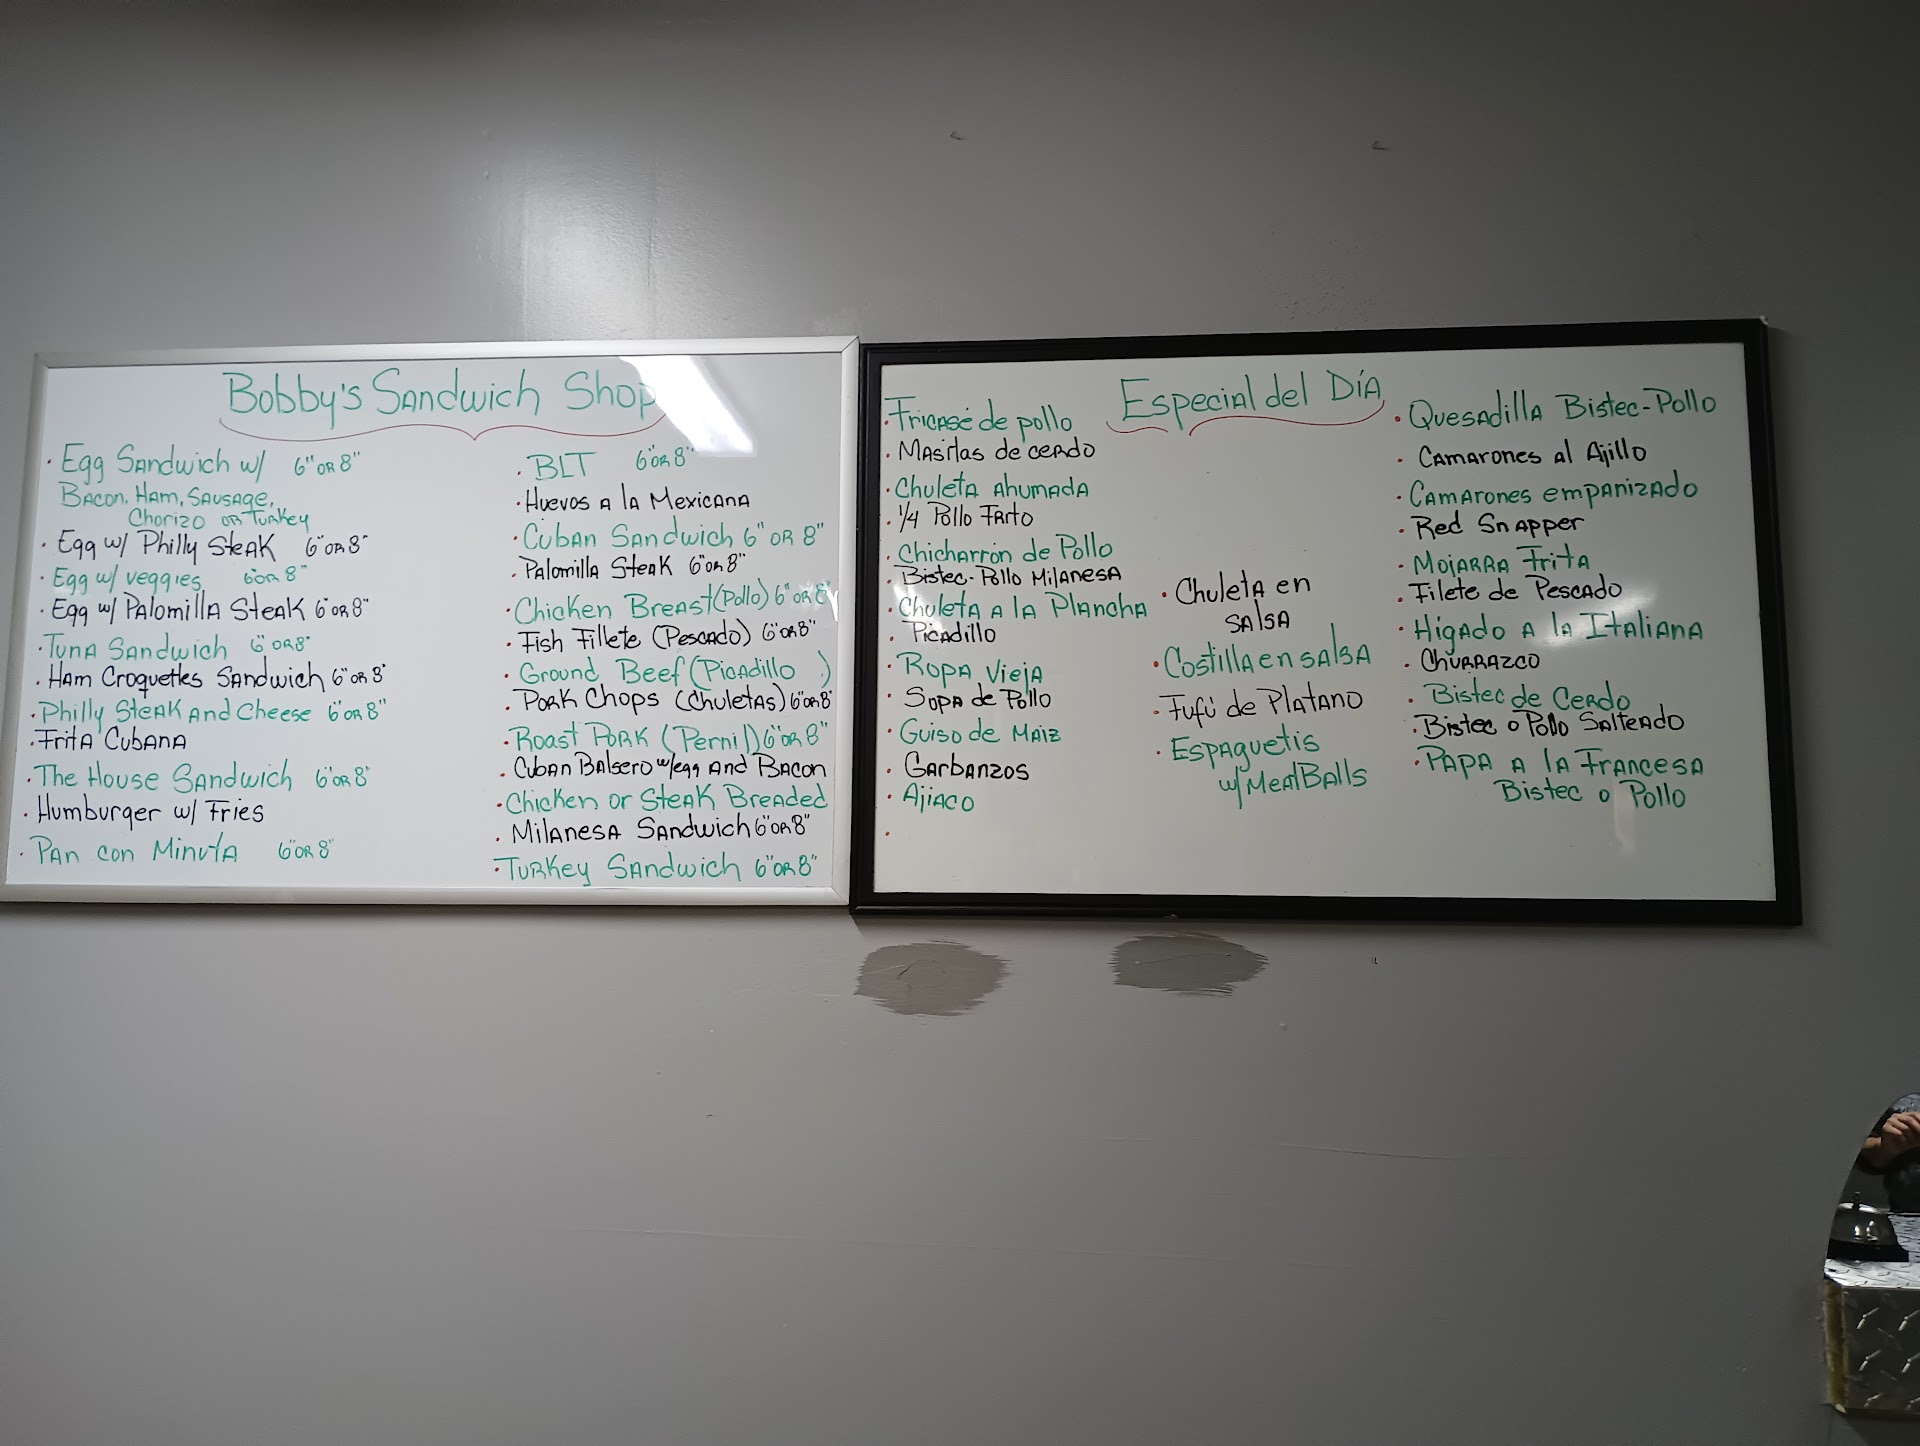 Bobby's Sandwich Shop
· Egg Sandwich w/ 6" OR 8"
Bacon, Ham, Sausage,
Chorizo OR Turkey
· Egg w/ Philly Steak 6" OR 8"
· Egg w/ veggies 6" OR 8"
· Egg w/ Palomilla Steak 6" OR 8"
· Tuna Sandwich 6" OR 8"
· Ham Croquettes Sandwich 6" OR 8"
· Philly Steak and Cheese 6" OR 8"
· Frita Cubana
· The House Sandwich 6" OR 8"
· Humburger w/ Fries
· Pan con Minuta 6" OR 8"
· BLT 6" OR 8"
· Huevos a la Mexicana
· Cuban Sandwich 6" OR 8"
· Palomilla Steak 6" OR 8"
· Chicken Breast (Pollo) 6" OR 8"
· Fish Fillete (Pescado) 6" OR 8"
· Ground Beef (Picadillo )
· Pork Chops (Chuletas) 6" OR 8"
· Roast Pork (Pernil) 6" OR 8"
· Cuban Balsero w/egg and Bacon
· Chicken or Steak Breaded
· Milanesa Sandwich 6" OR 8"
· Turkey Sandwich 6" OR 8"
Especial del Día
· Fricasé de pollo
· Masitas de cerdo
· Chuleta Ahumada
· 1/4 Pollo Frito
· Chicharrón de Pollo
· Bistec-Pollo Milanesa
· Chuleta a la Plancha
· Picadillo
· Ropa Vieja
· Sopa de Pollo
· Guiso de Maiz
· Garbanzos
· Ajiaco
· Chuleta en
salsa
· Costilla en salsa
· Fufú de Platano
· Espaguetis
w/ MeatBalls
· Quesadilla Bistec-Pollo
· Camarones al Ajillo
· Camarones empanizado
· Red Snapper
· Mojarra Frita
· Filete de Pescado
· Hígado a la Italiana
· Churrazco
· Bistec de Cerdo
· Bistec o Pollo Salteado
· Papa a la Francesa
Bistec o Pollo